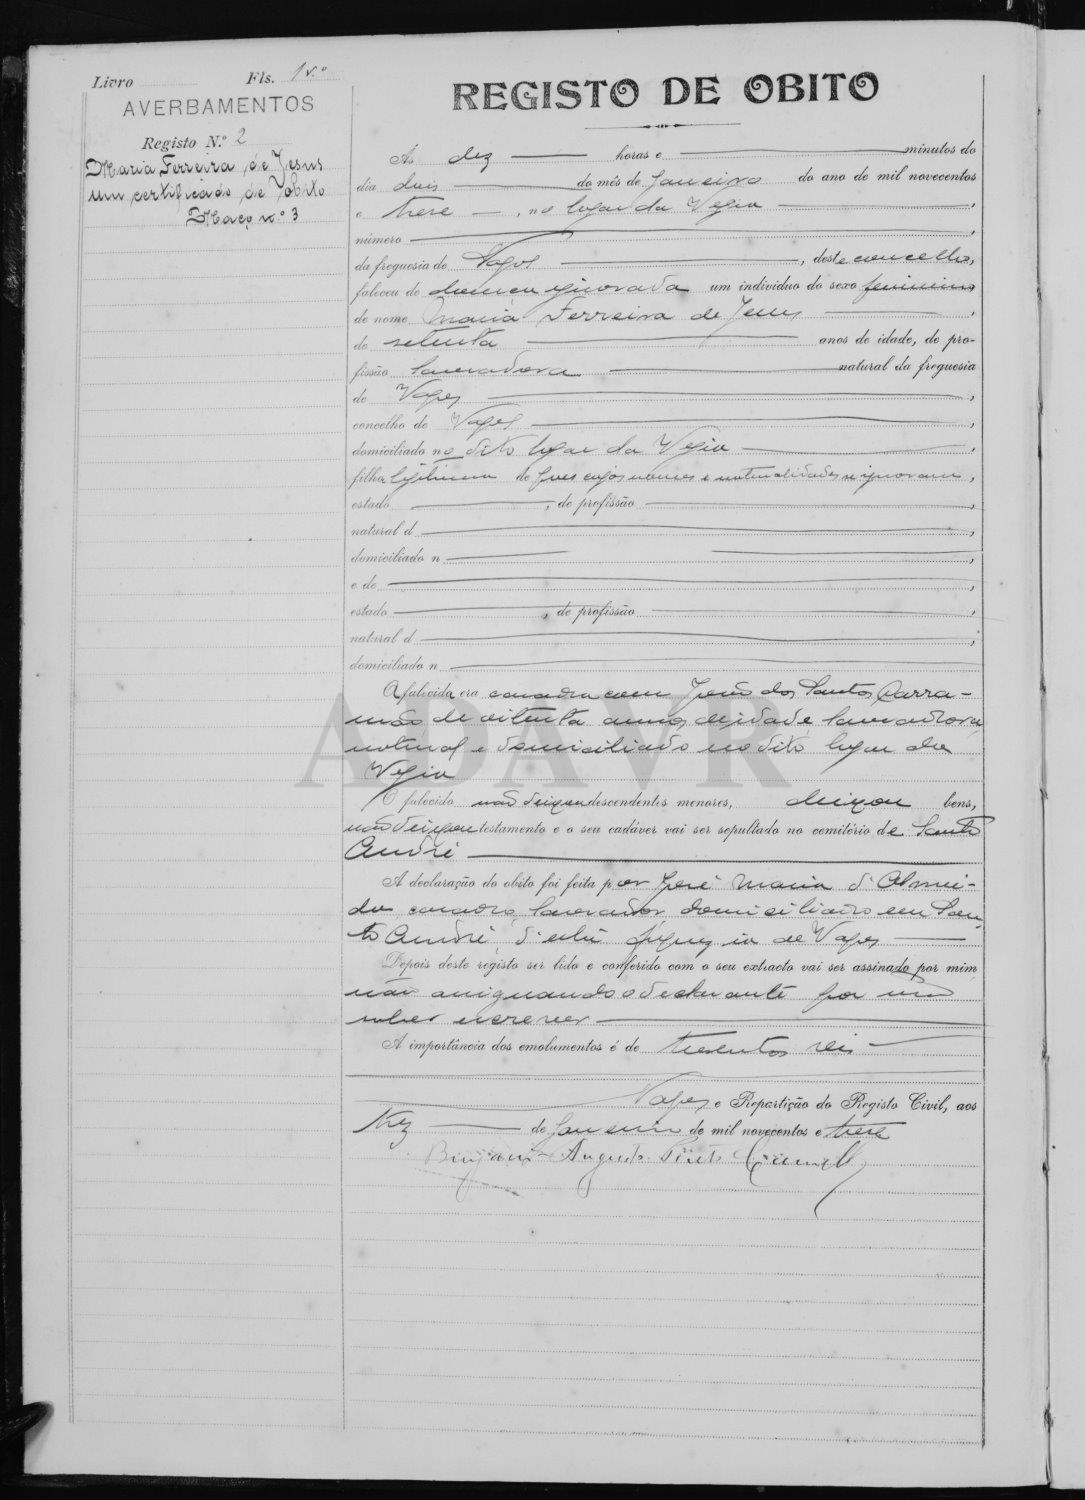 Livro Fls. 1v.º
AVERBAMENTOS
Registo N.º 2
Maria Ferreira de Jesus
um certificado de óbito
Maço nº 3
REGISTO DE OBITO
As dez horas e minutos do
dia dois do mês de Janeiro do ano de mil novecentos
e treze, no logar da Vigia,
número,
da freguesia de Vagos, deste concelho,
faleceu de doença ignorada um individuo do sexo feminino
de nome Maria Ferreira de Jesus,
de setenta anos de idade, de pro-
fissão lavradora natural da freguesia
de Vagos,
concelho de Vagos,
domiciliado no dito logar da Vigia,
filha legitima de paes cujos nomes e naturalidades se ignoram,
estado, de profissão,
natural d,
domiciliado n,
e de,
estado, de profissão,
natural d,
domiciliado n
A falecida era casada com João dos Santos Carra-
mão de oitenta annos de idade lavrador,
natural e domiciliado no dito logar da
Vigia
O falecido não deixou descendentes menores, deixou bens,
não deixou testamento e o seu cadáver vai ser sepultado no cemitério de Santo
André
A declaração do obito foi feita por José Maria d'Almei-
da casado lavrador domiciliado em San-
to André, d'esta freguezia de Vagos
Depois deste registo ser lido e conferido com o seu extracto vai ser assinado por mim
não assignando o declarante por não
saber escrever
A importância dos emolumentos é de trezentos reis
Vagos e Repartição do Registo Civil, aos
trez de Janeiro de mil novecentos e treze
Augusto
ADAVR